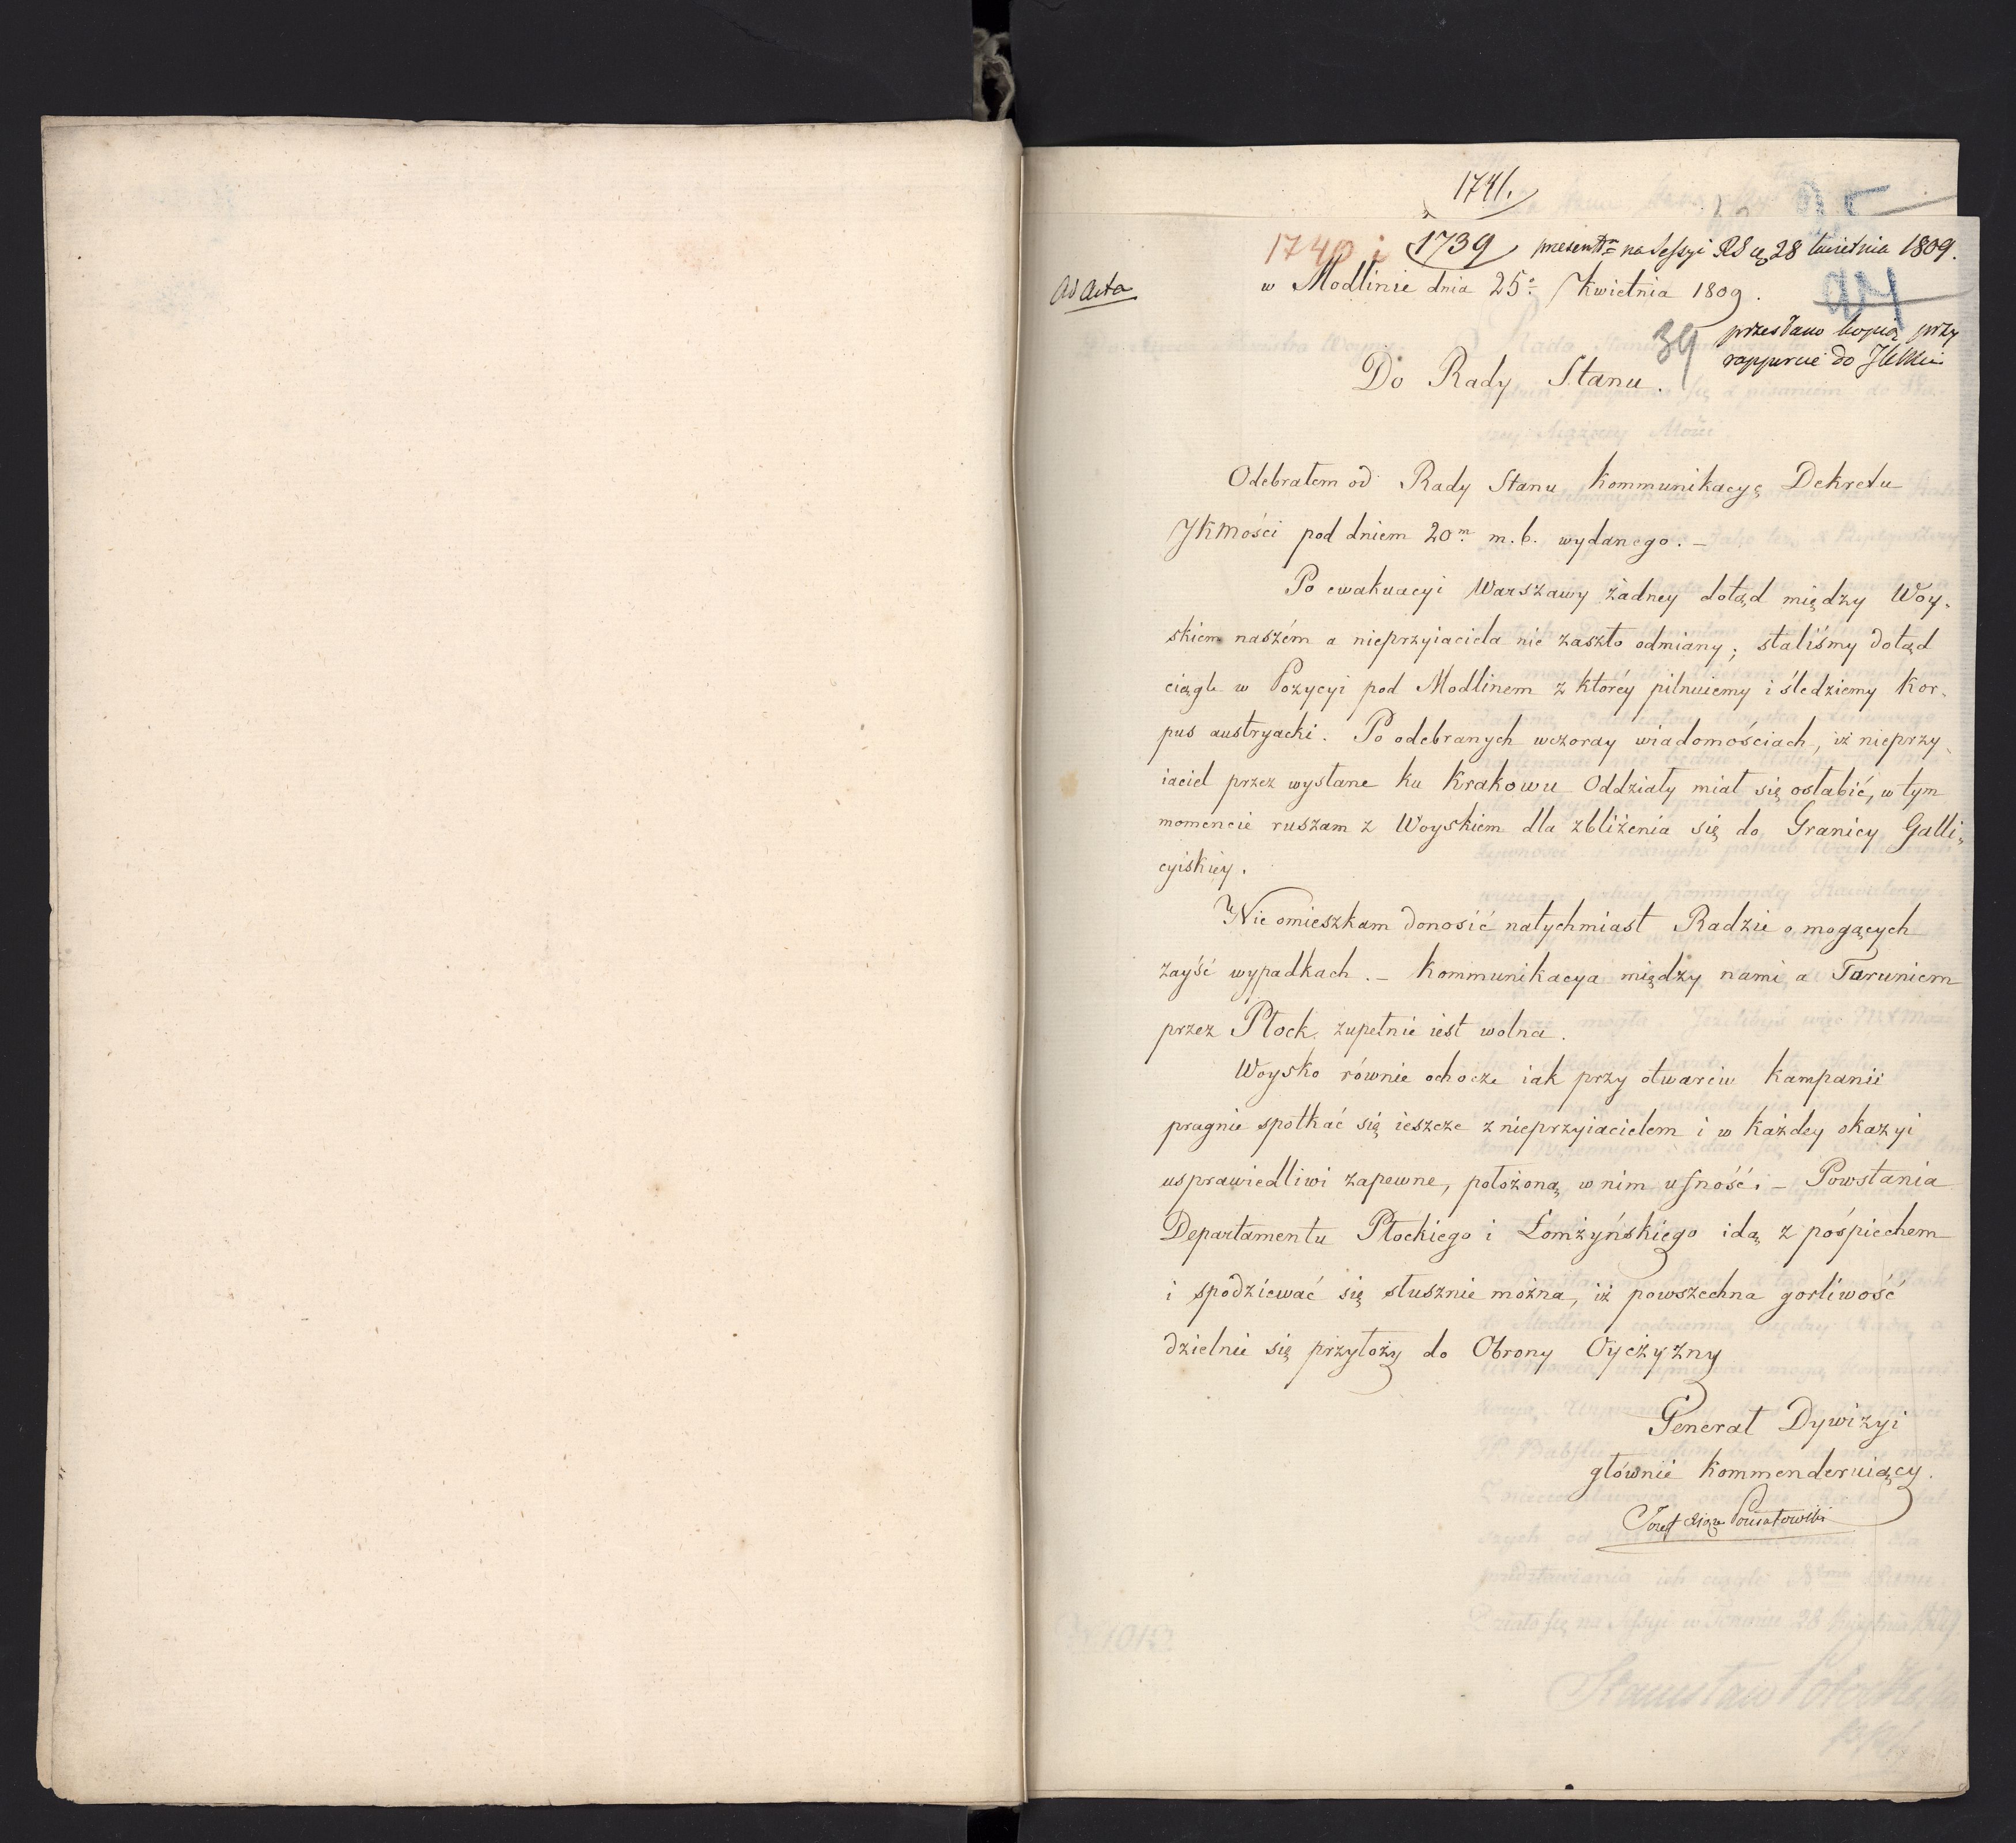 1741.
1740 i 1739 present. na Sessyi RS. 28 kwietnia 1809.
Ad Acta
w Modlinie dnia 25. Kwietnia 1809.
94
39
przesłano kopią przy
rapporcie do JKMci
Do Rady Stanu.
Odebrałem od Rady Stanu Kommunikacyę Dekretu
JKMości pod dniem 20m. m. b. wydanego. –
Po ewakuacyi Warszawy żadney dotąd między Woy-
skiem naszém a nieprzyiaciela nie zaszło odmiany; staliśmy dotąd
ciągle w Pozycyi pod Modlinem z któréy pilnuiemy i śledziemy Kor-
pus austryacki. Po odebranych wczoray wiadomościach, iż nieprzy-
iaciel przez wysłane ku Krakowu Oddziały miał się osłabić, w tym
momencie ruszam z Woyskiem dla zbliżenia się do Granicy Galli-
cyiskiey.
Nie omieszkam donosić natychmiast Radzie o mogących
zayść wypadkach. – Kommunikacya między nami a Toruniem
przez Płock zupełnie iest wolna.
Woysko równie ochocze iak przy otwarciu Kampanii
pragnie spotkać się ieszcze z nieprzyiacielem i w każdey okazyi
usprawiedliwi zapewne, położoną w nim ufność. – Powstania
Departamentu Płockiego i Łomżyńskiego idą z pośpiechem
i spodziewać się słusznie można, iż powszechna gorliwość
dzielnie się przyłoży do Obrony Oyczyzny
Generał Dywizyi
głównie Kommenderuiący.
Józef Xiąże Poniatowski